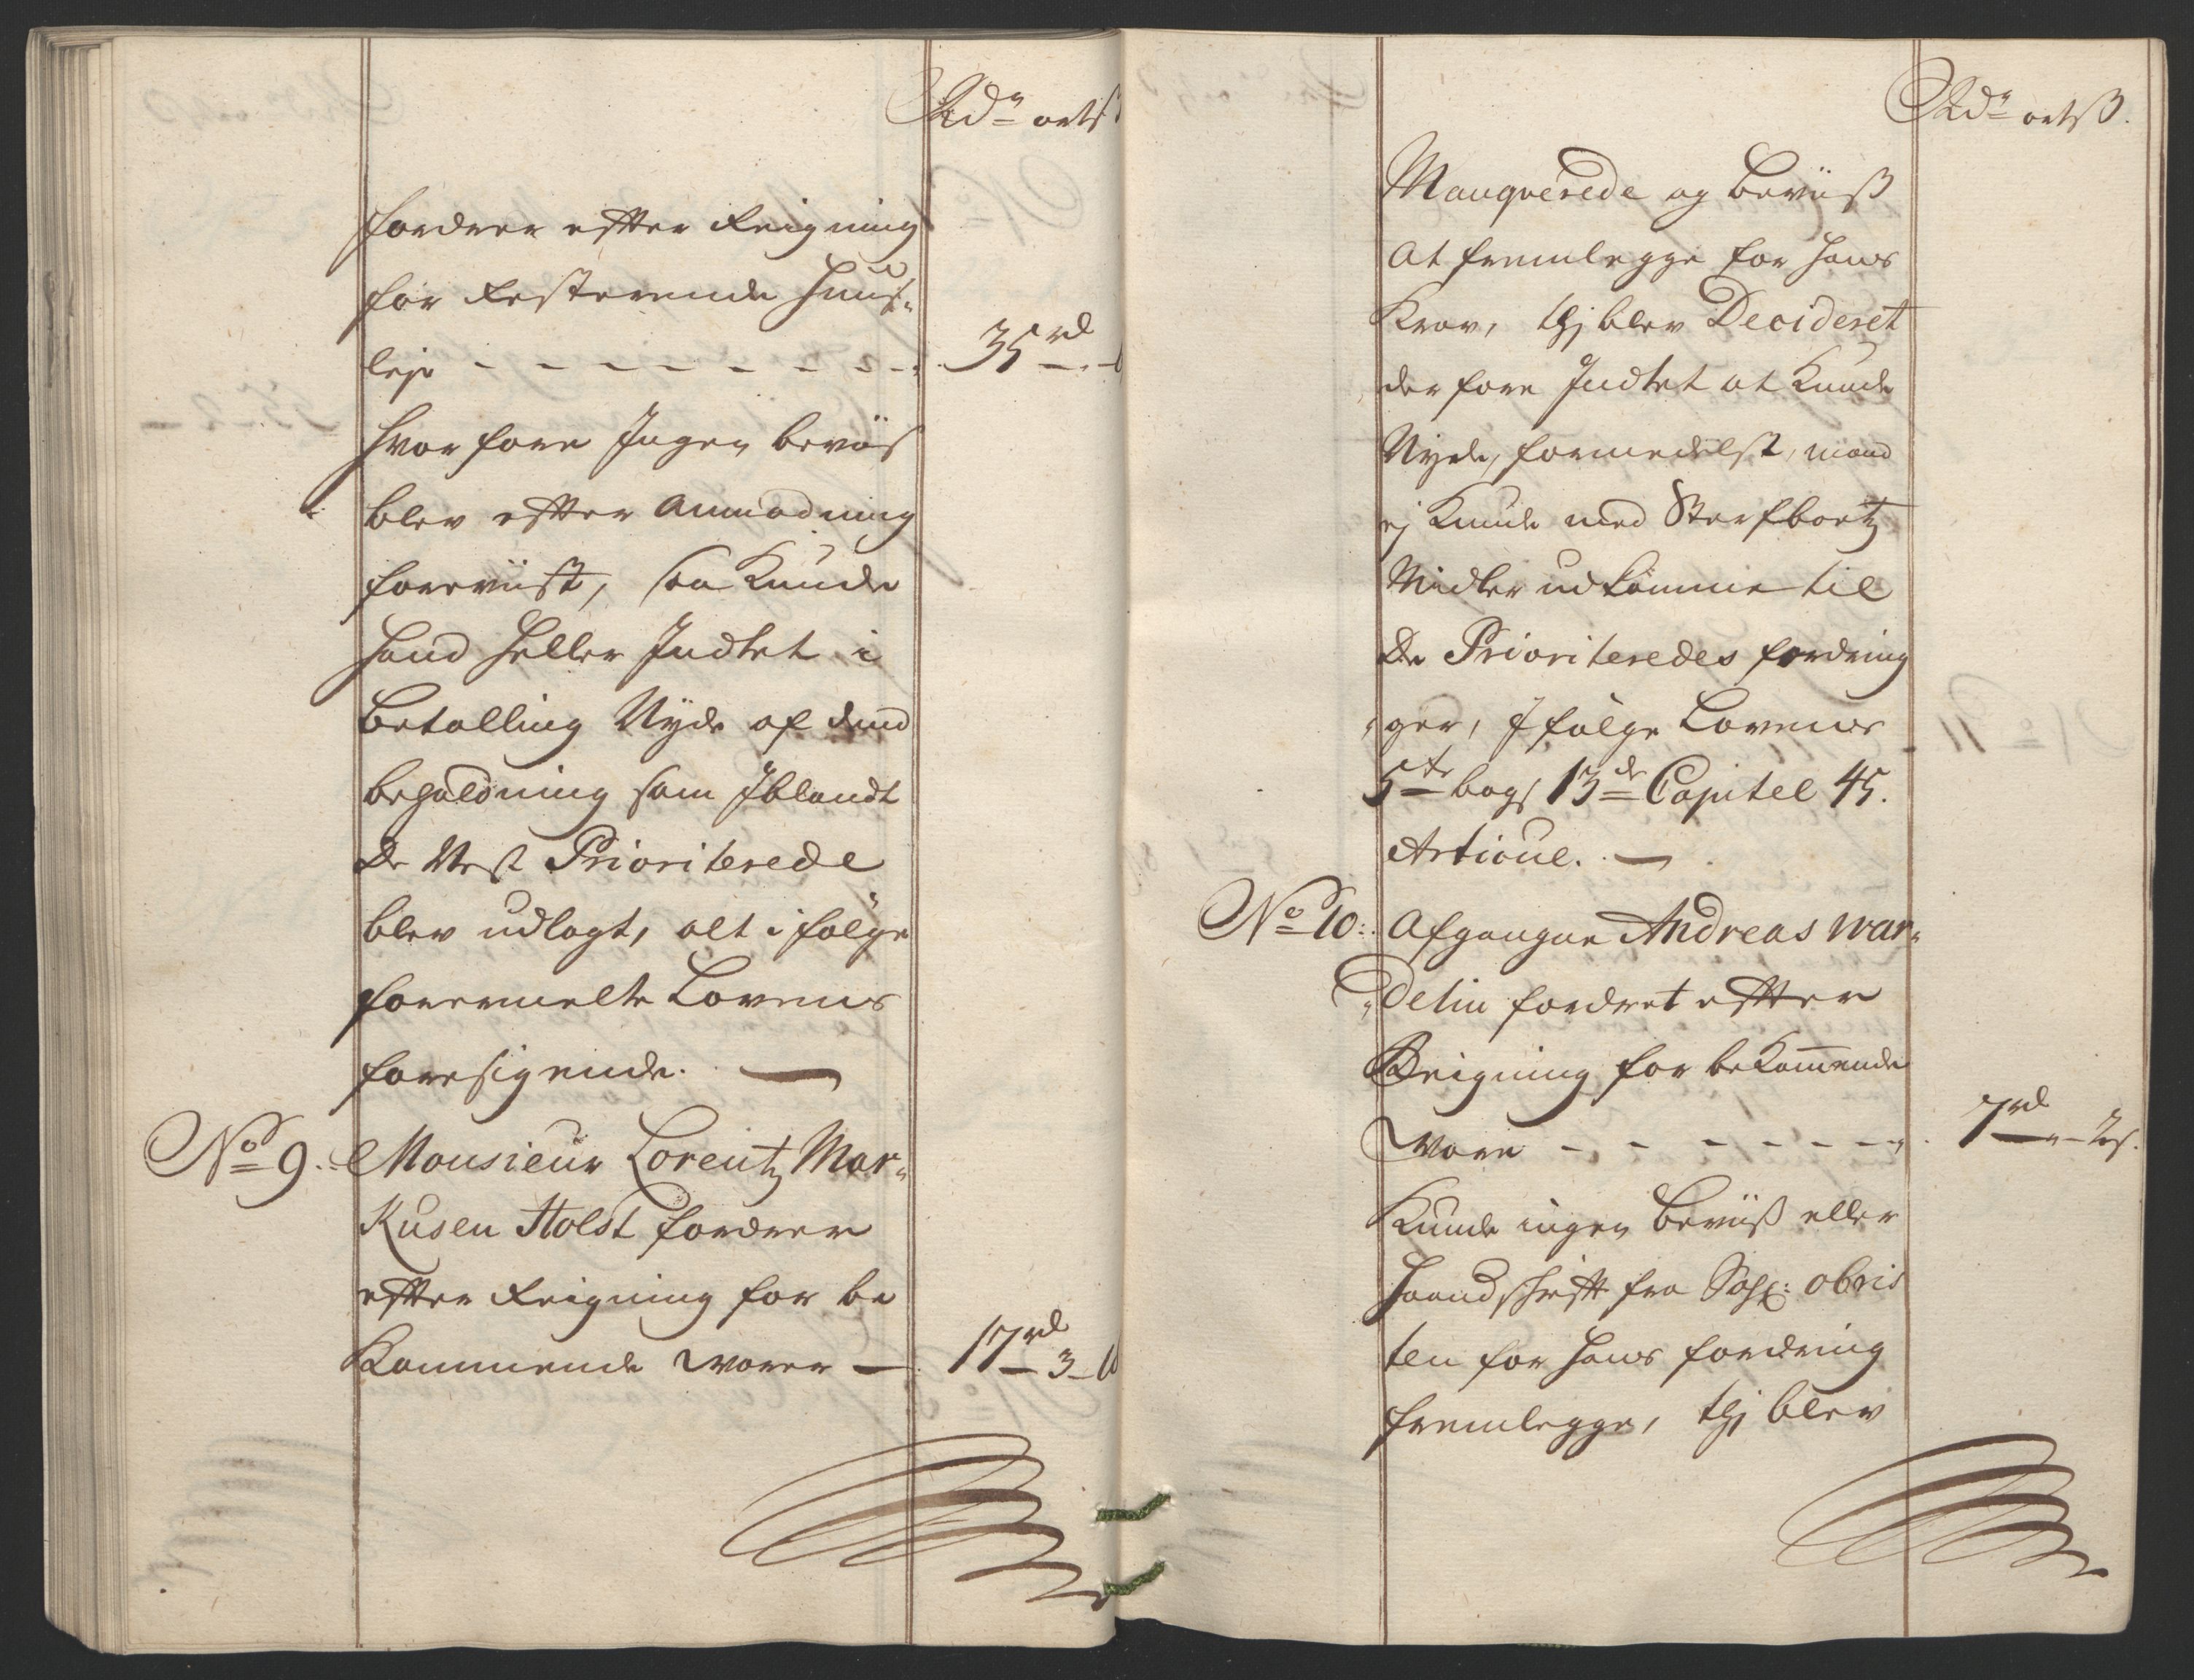 Rd:r ort ß
fordrer efter Reigning
for Resterende Huus-
leje - - - - - - - - 35 rd - -
hvorfore Ingen beviis
blev efter anmodning
foreviist, saa Kunde
hand heller Indtet i
Betalling Nyde af dend
beholdning som Iblandt
De Mest Prioriterede
blev udlagt, alt i følge
forermelte Lovens
foresigende. —
No 9. Monsieur Lorentz Mar-
Kusen Holst fordrer
efter Reigning for be
Kommende Varer — 17 rd 3 -
Rd:r ort ß.
Manqverede og Beviiß
At fremlegge for hans
Krav, thj blev Decideret
der fore Indtet at Kunde
Nyde, formedelst, mand
ej Kunde med Sterfboetz
Midler udkomme til
De Prioriteredes fordring
ger, I følge Lovens
5te bogs 13de Capitel 45.
Articul. —
No 10. Afgangne Andreas War-
delin fordret efter
Reigning for bekommende
Vare - - - - - - - 7 rd - 2 s.
Kunde ingen Beviiß eller
Haandschrifft fra Sahl: Obris
ten for hans fordring
fremlegge, thj blev